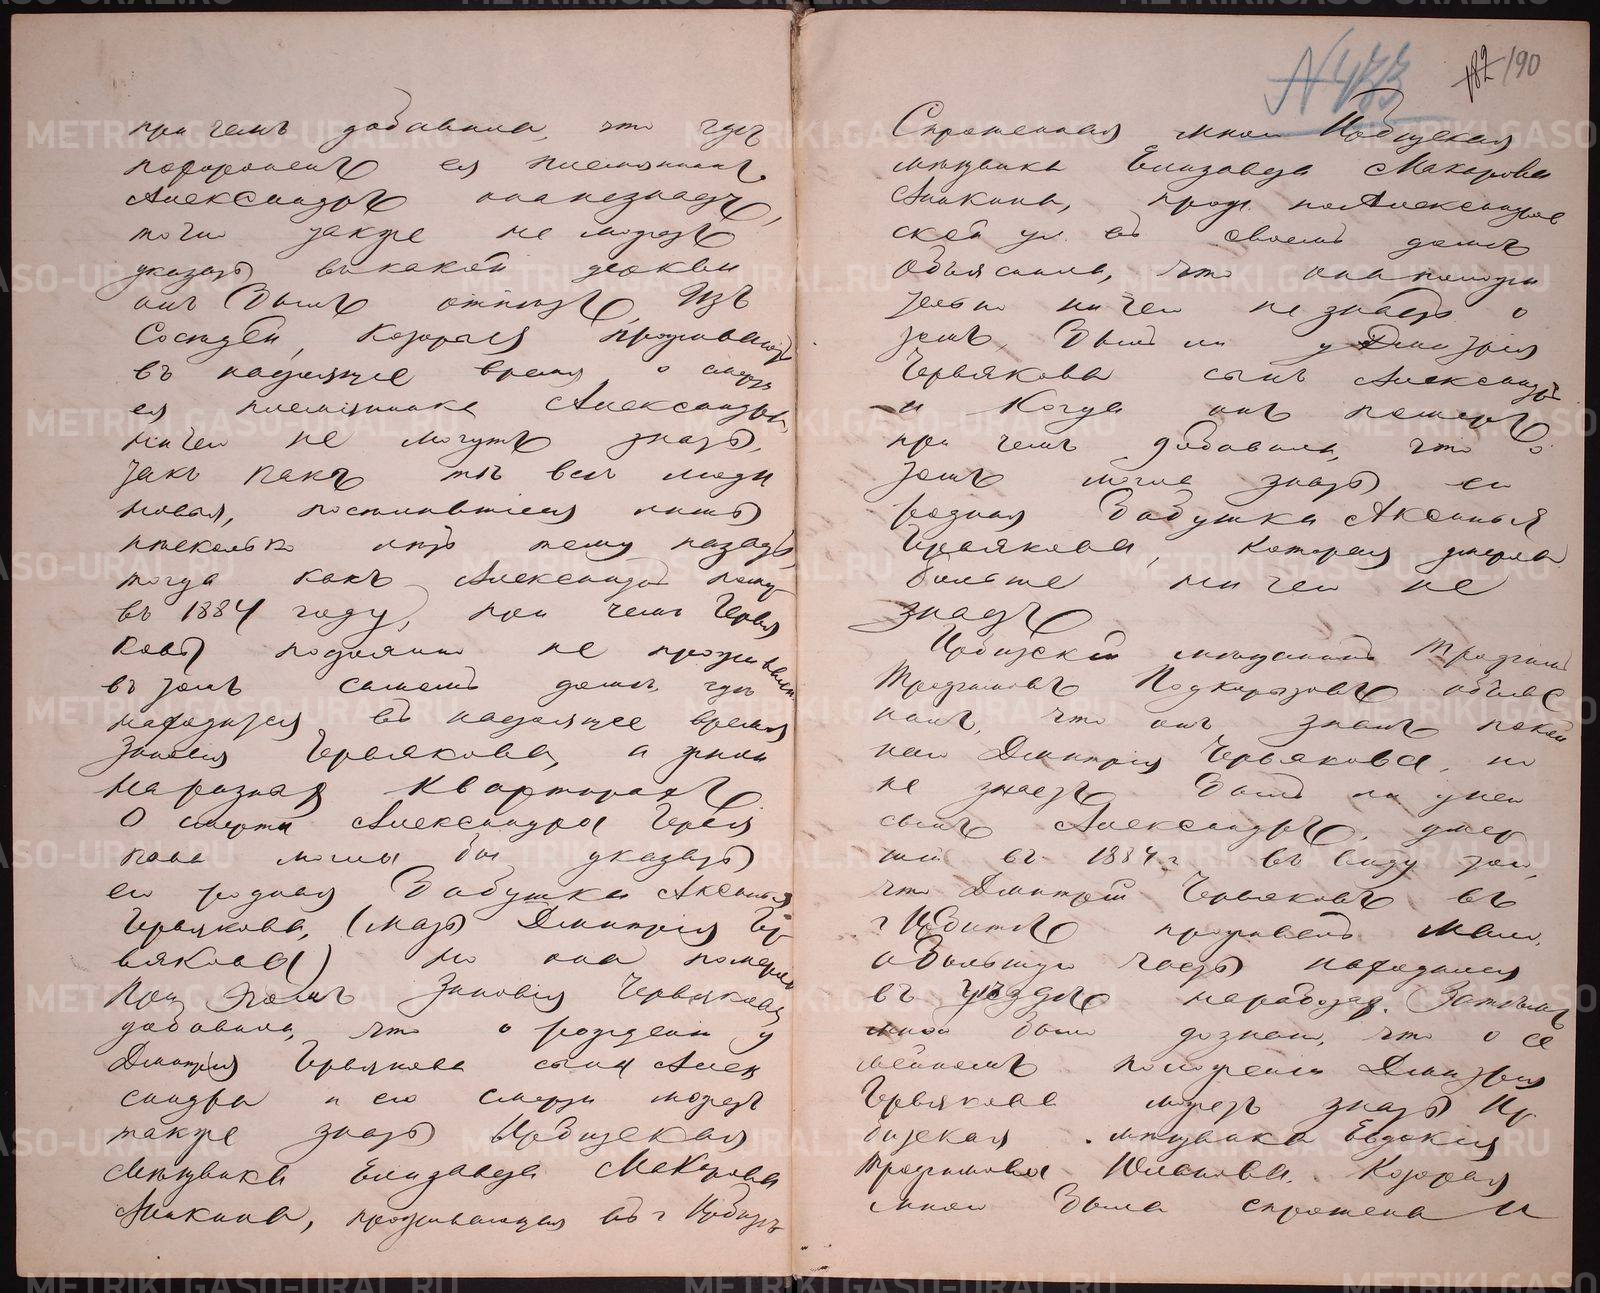 при чемъ добавила, что гдѣ
похороненъ ея племянникъ
Александръ она не знаетъ,
точно также не можетъ
указать въ какой церкви
онъ былъ отпѣтъ. Изъ
Сосѣдей, которыя проживаютъ
въ настоящее время о смерти
ея племянника Александра
ничего не могутъ знать,
такъ какъ тѣ все люди
новыя, поселившіеся лишь
нѣсколько лѣтъ тому назадъ,
тогда какъ Александръ
въ 1884 году, при чемъ Червя
ковы подолгу не проживали
въ томъ самомъ домѣ, гдѣ
находится въ настоящее время
Зиновія Червякова, а жили
на разныхъ квартирахъ
О смерти Александра Червя
кова могла бы указать
его родная бабушка Аксинья
Червякова, (мать Дмитрія Чер
вякова) но она померла
При этомъ Зиновія Червякова
добавила, что о рожденіи у
Дмитрія Червякова сына Алек
сандра и его смерти можетъ
также знать Ирбитская
мѣщанка Елизавета Макарова
Аникина, проживающая въ г Ирбитѣ
N 433
182/190
Спрошенная мною Ирбитская
мѣщанка Елизавета Макарова
Аникина, прож. по Александров
ской ул. въ своемъ домѣ
объяснила, что она положи
тельно ничего не знаетъ о
томъ, былъ ли у Дмитрія
Червякова сынъ Александръ
и когда онъ померъ
при чемъ добавила, что о
томъ могла знать его
родная бабушка Аксинья
Червякова, которая умерла
больше ничего не
знаетъ
Ирбитскій мѣщанинъ Трофимъ
Трофимовъ Подкорытовъ объяс
нилъ, что онъ зналъ покой
наго Дмитрія Червякова, но
не знаетъ былъ ли у него
сынъ Александръ, умер
шій въ 1884 г въ виду того,
что Дмитрій Червяковъ въ
г Ирбитѣ проживалъ мало,
а большую часть находился
въ уѣздѣ на работах. Затѣмъ
мной было дознано, что о се
мейномъ положеніи Дмитрія
Червякова можетъ знать Ир
битская мѣщанка Евдокія
Трофимова Юлanова. Которая
мною была спрошена и